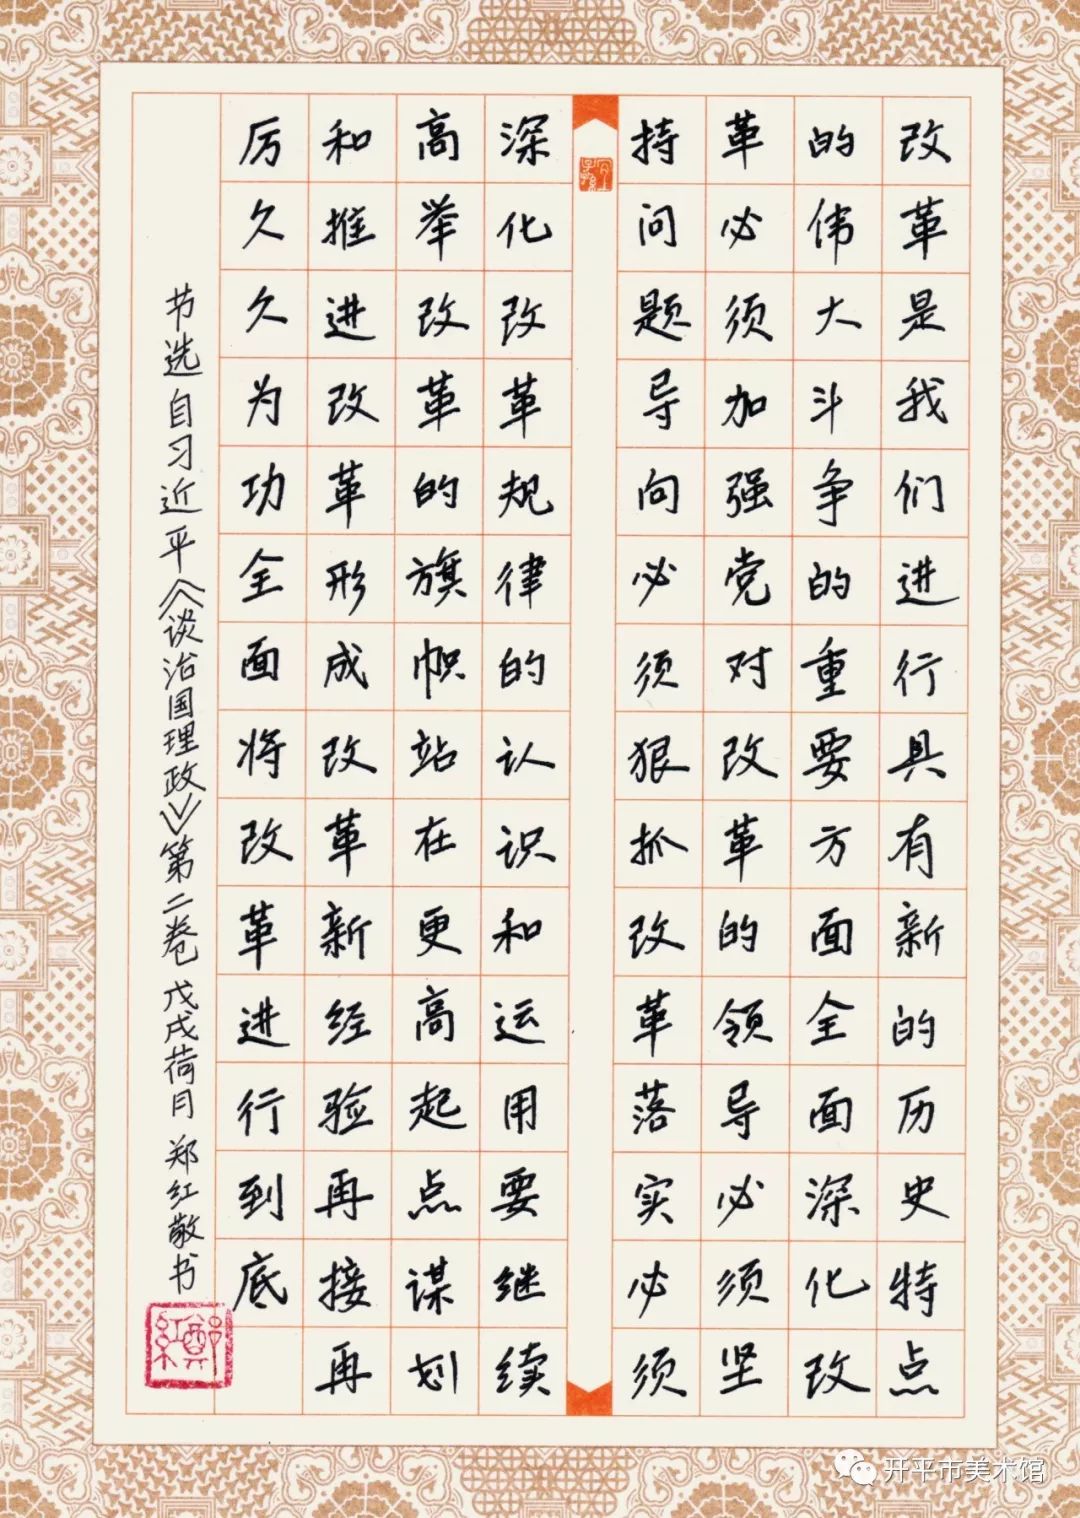 改革是我们进行具有新的历史特点
的伟大斗争的重要方面全面深化改
革必须加强党对改革的领导必须坚
持问题导向必须狠抓改革落实必须
深化改革规律的认识和运用要继续
高举改革的旗帜站在更高起点谋划
和推进改革形成改革新经验再接再
厉久久为功全面将改革进行到底
节选自习近平《谈治国理政》第二卷 戊戌荷月 郑红敬书
鄭紅
开平市美术馆